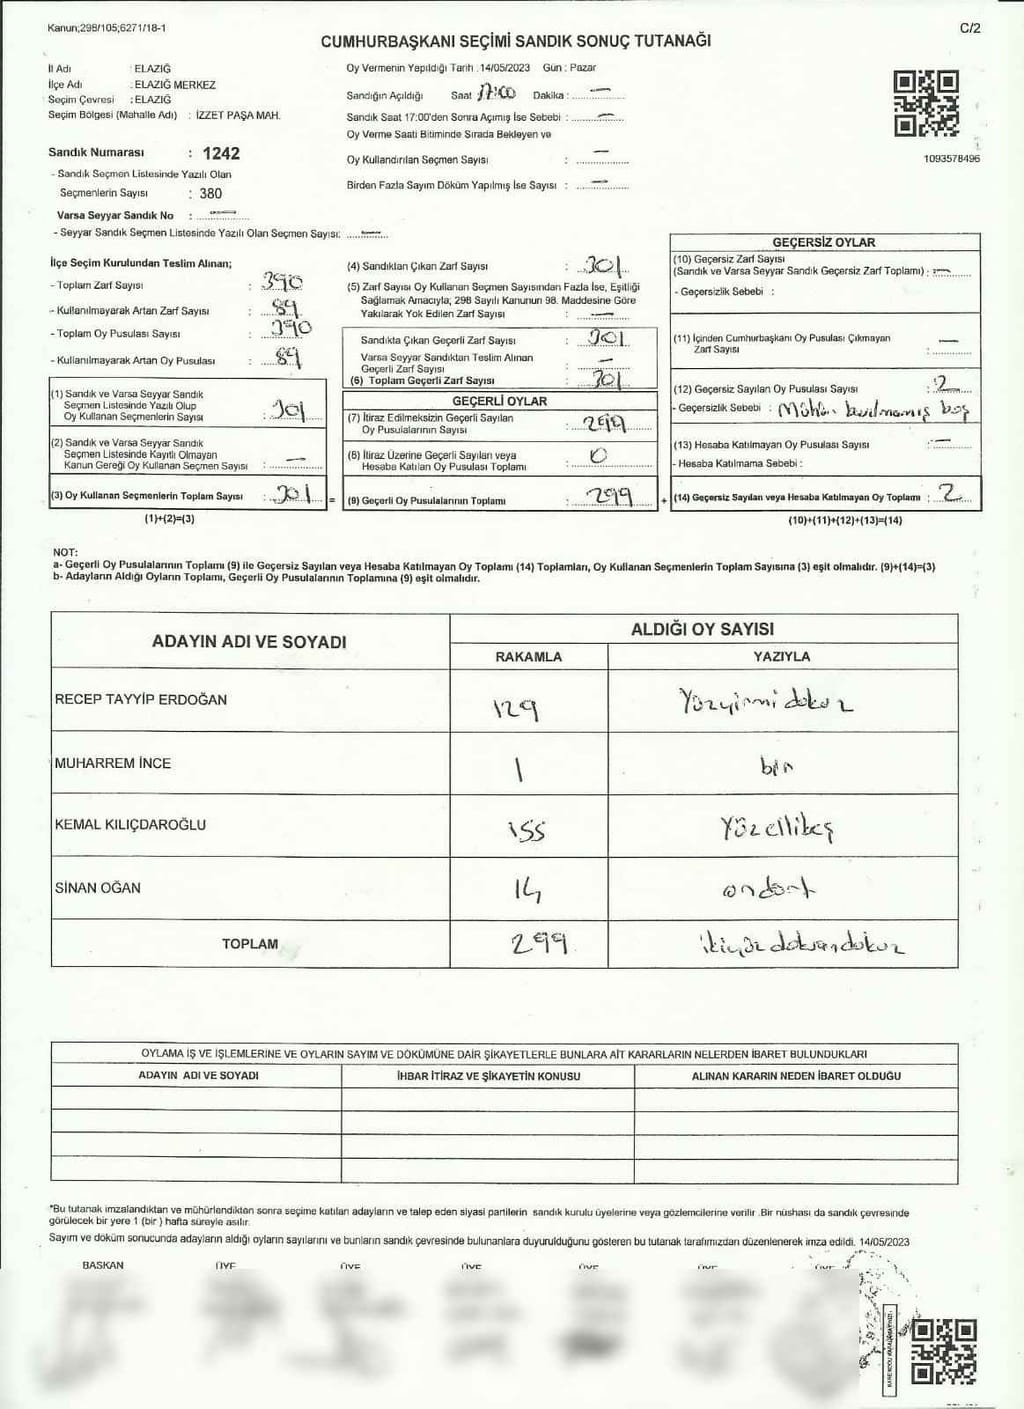 Kanun;298/105;6271/18-1
C/2
CUMHURBAŞKANI SEÇİMİ SANDIK SONUÇ TUTANAĞI
İl Adı : ELAZIĞ
İlçe Adı : ELAZIĞ MERKEZ
Seçim Çevresi : ELAZIĞ
Seçim Bölgesi (Mahalle Adı) : İZZET PAŞA MAH.
Sandık Numarası : 1242
- Sandık Seçmen Listesinde Yazılı Olan
Seçmenlerin Sayısı : 380
Varsa Seyyar Sandık No : —
- Seyyar Sandık Seçmen Listesinde Yazılı Olan Seçmen Sayısı: —
Oy Vermenin Yapıldığı Tarih : 14/05/2023 Gün : Pazar
Sandığın Açıldığı Saat 17:00 Dakika : —
Sandık Saat 17:00'den Sonra Açımış İse Sebebi : —
Oy Verme Saati Bitiminde Sırada Bekleyen ve
Oy Kullandırılan Seçmen Sayısı : —
Birden Fazla Sayım Döküm Yapılmış İse Sayısı : —
1093578496
İlçe Seçim Kurulundan Teslim Alınan;
- Toplam Zarf Sayısı : 390
- Kullanılmayarak Artan Zarf Sayısı : 89
- Toplam Oy Pusulası Sayısı : 390
- Kullanılmayarak Artan Oy Pusulası : 89
(1) Sandık ve Varsa Seyyar Sandık
Seçmen Listesinde Yazılı Olup
Oy Kullanan Seçmenlerin Sayısı : 301
(2) Sandık ve Varsa Seyyar Sandık
Seçmen Listesinde Kayıtlı Olmayan
Kanun Gereği Oy Kullanan Seçmen Sayısı : —
(3) Oy Kullanan Seçmenlerin Toplam Sayısı : 301 =
(1)+(2)=(3)
(4) Sandıktan Çıkan Zarf Sayısı : 301
(5) Zarf Sayısı Oy Kullanan Seçmen Sayısından Fazla İse, Eşitliği
Sağlamak Amacıyla; 298 Sayılı Kanunun 98. Maddesine Göre
Yakılarak Yok Edilen Zarf Sayısı : —
Sandıkta Çıkan Geçerli Zarf Sayısı : 301
Varsa Seyyar Sandıktan Teslim Alınan
Geçerli Zarf Sayısı : —
(6) Toplam Geçerli Zarf Sayısı : 301
GEÇERLİ OYLAR
(7) İtiraz Edilmeksizin Geçerli Sayılan
Oy Pusulalarının Sayısı : 299
(8) İtiraz Üzerine Geçerli Sayılan veya
Hesaba Katılan Oy Pusulası Toplamı : 0
(9) Geçerli Oy Pusulalarının Toplamı : 299 +
GEÇERSİZ OYLAR
(10) Geçersiz Zarf Sayısı
(Sandık ve Varsa Seyyar Sandık Geçersiz Zarf Toplamı) : —
- Geçersizlik Sebebi :
(11) İçinden Cumhurbaşkanı Oy Pusulası Çıkmayan
Zarf Sayısı : —
(12) Geçersiz Sayılan Oy Pusulası Sayısı : 2
- Geçersizlik Sebebi : Mühür basılmamış boş
(13) Hesaba Katılmayan Oy Pusulası Sayısı : —
- Hesaba Katılmama Sebebi :
(14) Geçersiz Sayılan veya Hesaba Katılmayan Oy Toplamı : 2
(10)+(11)+(12)+(13)=(14)
NOT:
a- Geçerli Oy Pusulalarının Toplamı (9) ile Geçersiz Sayılan veya Hesaba Katılmayan Oy Toplamı (14) Toplamları, Oy Kullanan Seçmenlerin Toplam Sayısına (3) eşit olmalıdır. (9)+(14)=(3)
b- Adayların Aldığı Oyların Toplamı, Geçerli Oy Pusulalarının Toplamına (9) eşit olmalıdır.
ADAYIN ADI VE SOYADI ALDIĞI OY SAYISI
RAKAMLA YAZIYLA
RECEP TAYYİP ERDOĞAN 129 Yüzyirmi dokuz
MUHARREM İNCE 1 bir
KEMAL KILIÇDAROĞLU 155 Yüzellibeş
SİNAN OĞAN 14 ondört
TOPLAM 299 ikiyüz doksandokuz
OYLAMA İŞ VE İŞLEMLERİNE VE OYLARIN SAYIM VE DÖKÜMÜNE DAİR ŞİKAYETLERLE BUNLARA AİT KARARLARIN NELERDEN İBARET BULUNDUKLARI
ADAYIN ADI VE SOYADI İHBAR İTİRAZ VE ŞİKAYETİN KONUSU ALINAN KARARIN NEDEN İBARET OLDUĞU
*Bu tutanak imzalandıktan ve mühürlendikten sonra seçime katılan adayların ve talep eden siyasi partilerin sandık kurulu üyelerine veya gözlemcilerine verilir .Bir nüshası da sandık çevresinde
görülecek bir yere 1 (bir ) hafta süreyle asılır.
Sayım ve döküm sonucunda adayların aldığı oyların sayılarını ve bunların sandık çevresinde bulunanlara duyurulduğunu gösteren bu tutanak tarafımızdan düzenlenerek imza edildi. 14/05/2023
BAŞKAN ÜYE ÜYE ÜYE ÜYE ÜYE ÜYE